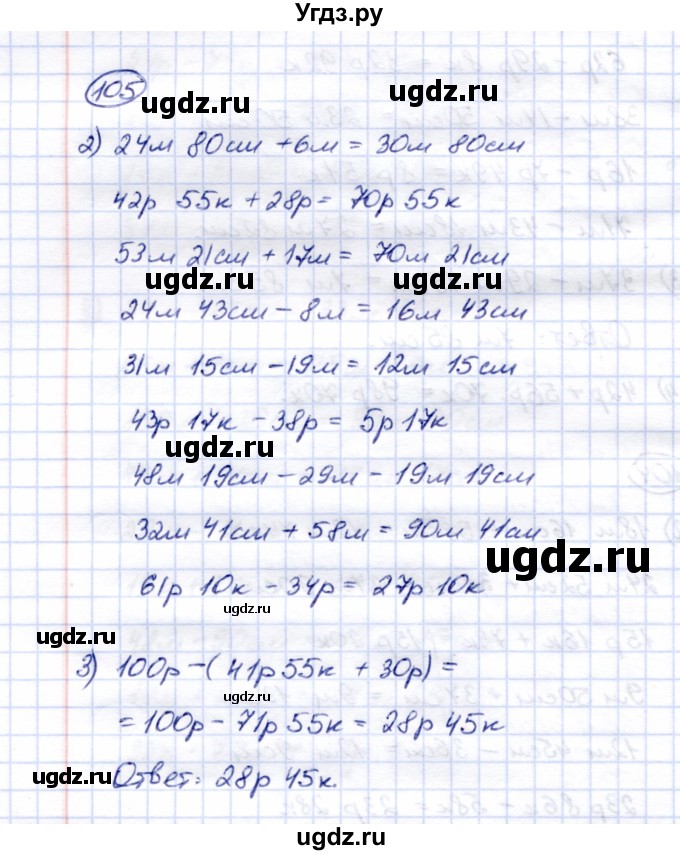 Угдз.ру
105
ugdz.ru ugdz.ru
2) 24м 80см + 6м = 30м 80см
42р 55к + 28р = 70р 55к
53м 21см + 17м = 70м 21см
ugdz.ru ugdz.ru
24м 43см - 8м = 16м 43см
31м 15см - 19м = 12м 15см
43р 17к - 38р = 5р 17к
ugdz.ru
48м 19см - 29м - 19м 19см
32м 41см + 58м = 90м 41см
ugdz.ru
61р 10к - 34р = 27р 10к
ugdz.ru
ugdz.ru
3) 100р - (41р 55к + 30р) =
ugdz.ru
= 100р - 71р 55к = 28р 45к
ugdz.ru ugdz.ru
Ответ: 28р 45к.
ugdz.ru